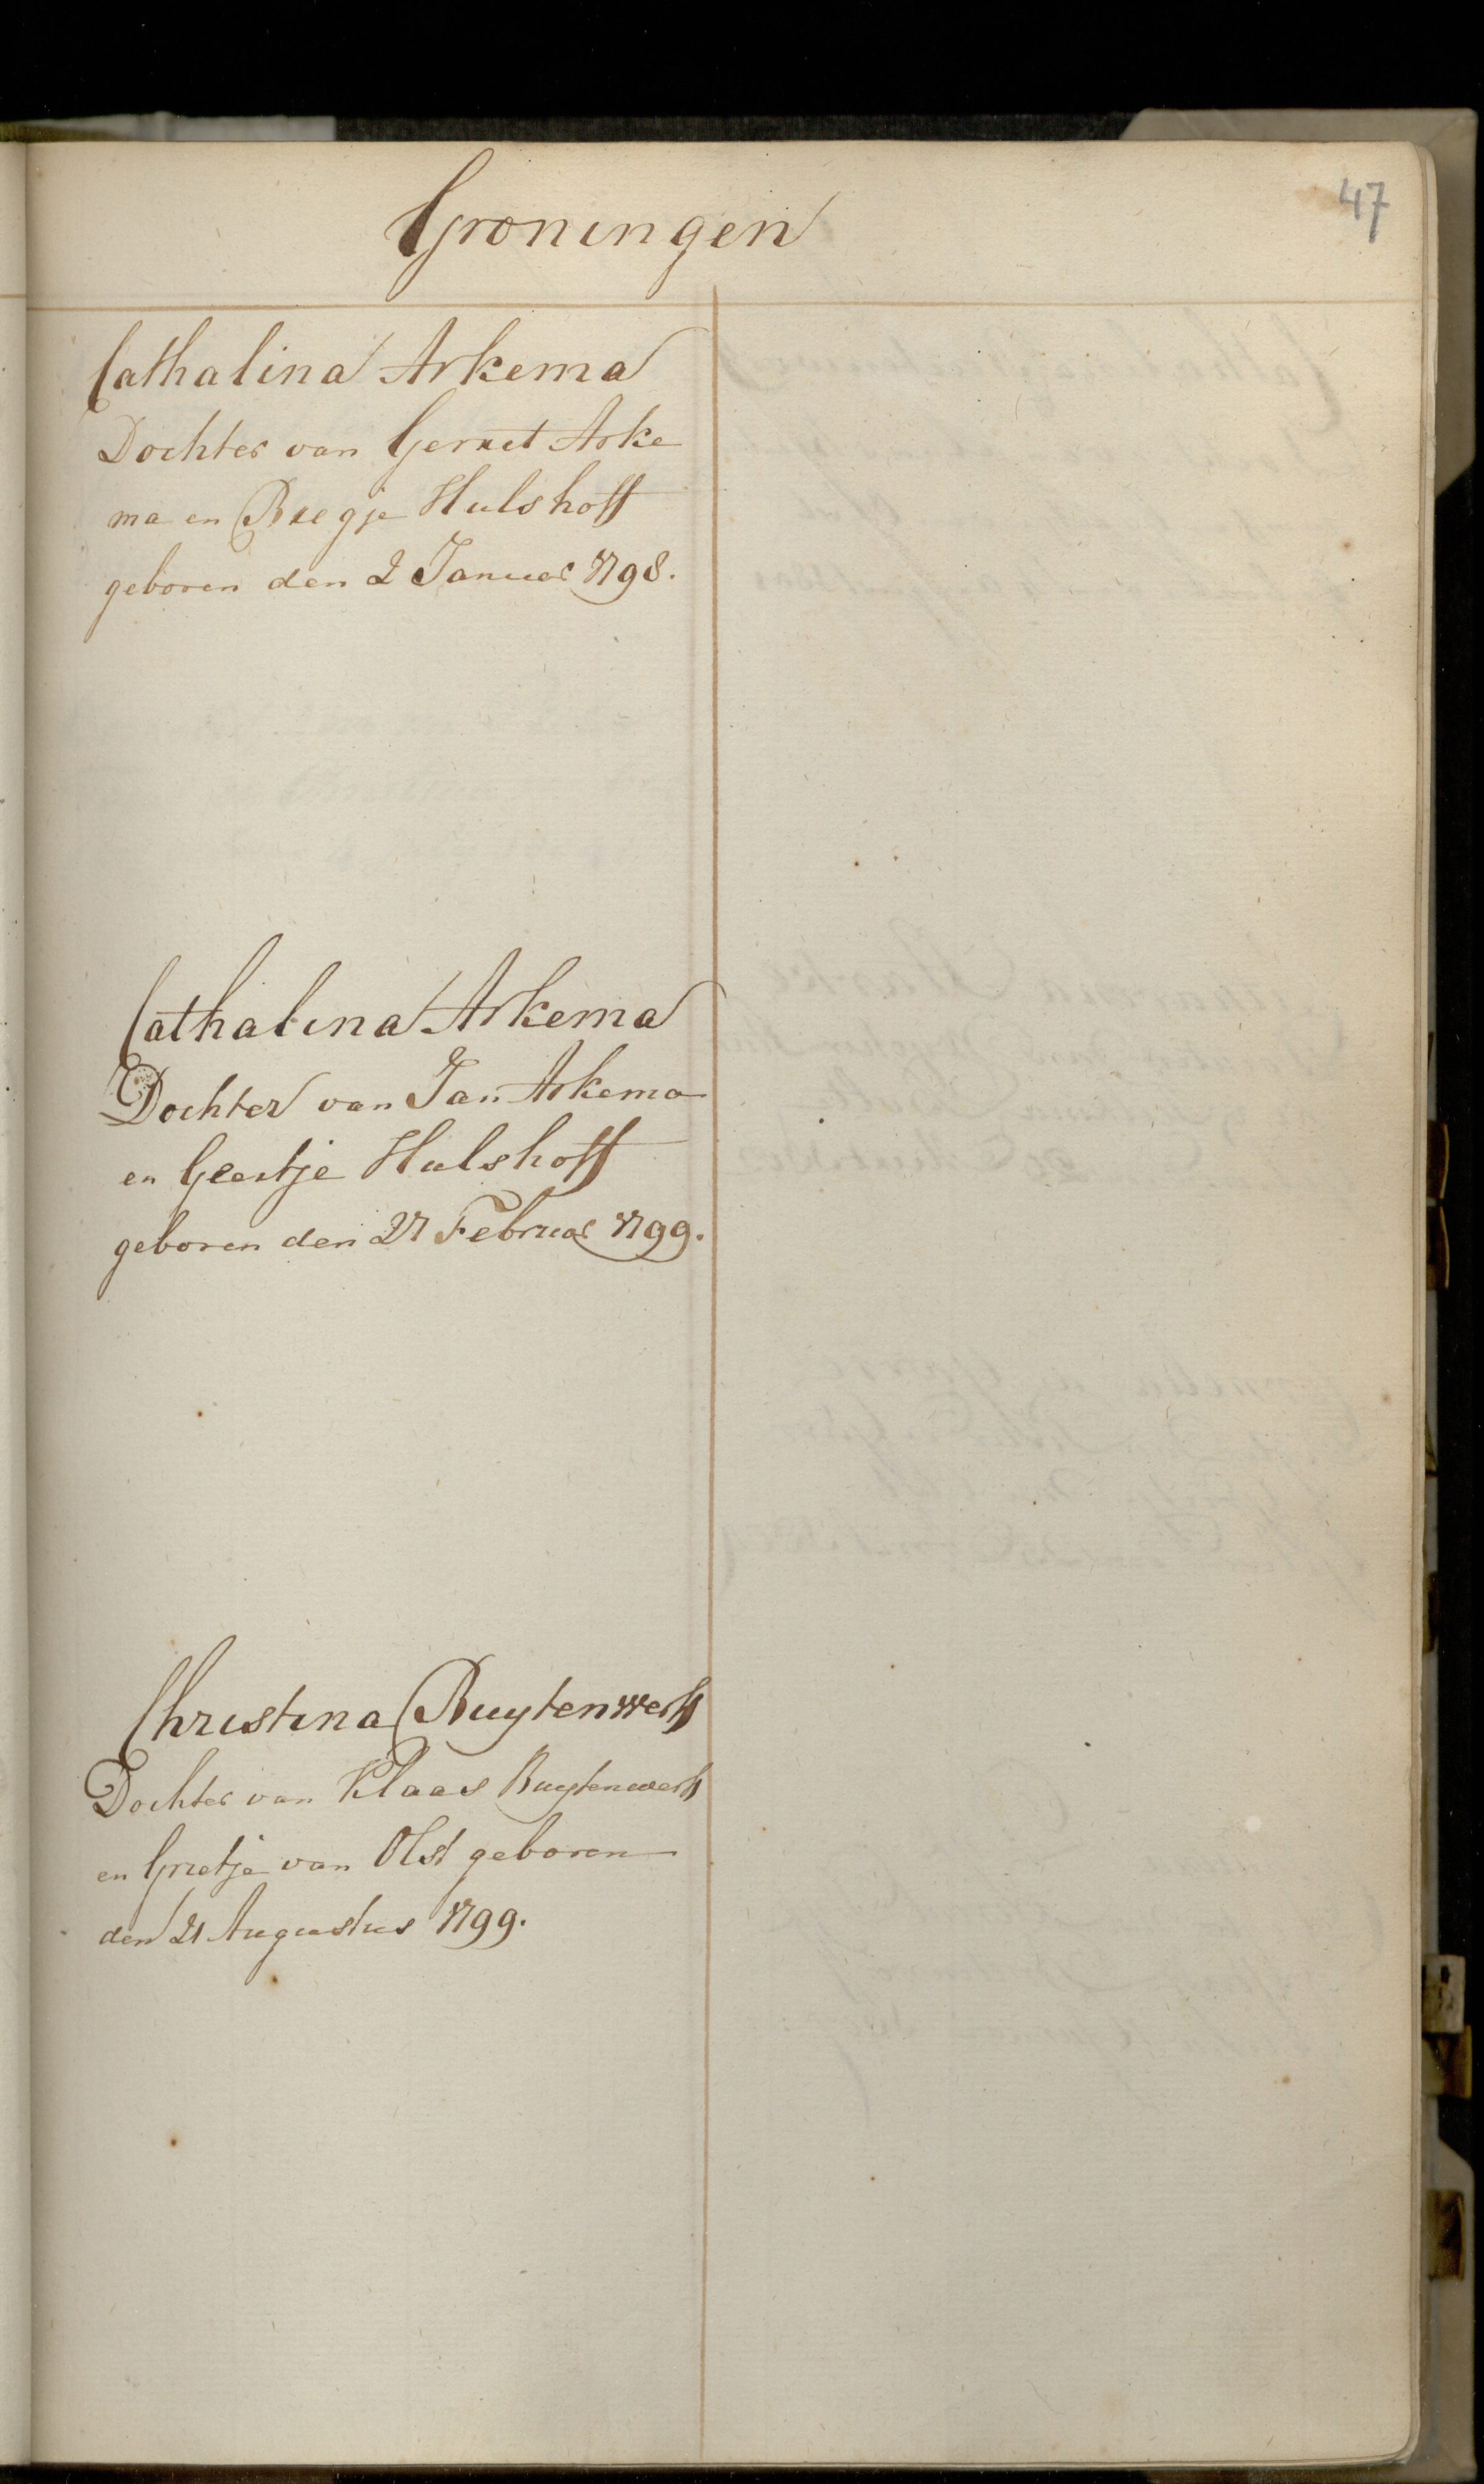 47
Groningen
Cathalina Arkema
Dochter van Gerrit Arke
ma en Breegje Hulshoff
geboren den 2 Januar 1798.
Cathalina Arkema
Dochter van Jan Arkema
en Geertje Hulshoff
geboren den 27 Februar 1799.
Christina Buytenwerf
Dochter van Klaas Buytenwerf
en Grietje van Olst geboren
den 21 Augustus 1799.